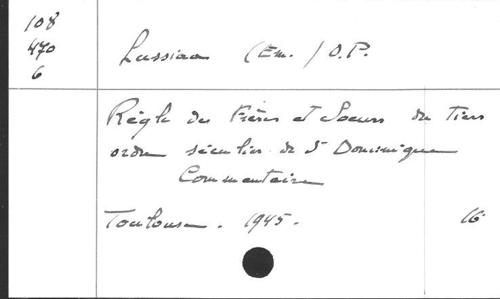 108
470
6
Lussiaa (Em.) O.P.
Règle des Frères et Soeurs du Tiers
ordre séculier de St Dominique
Commentaire
Toulouse. 1945. 16°